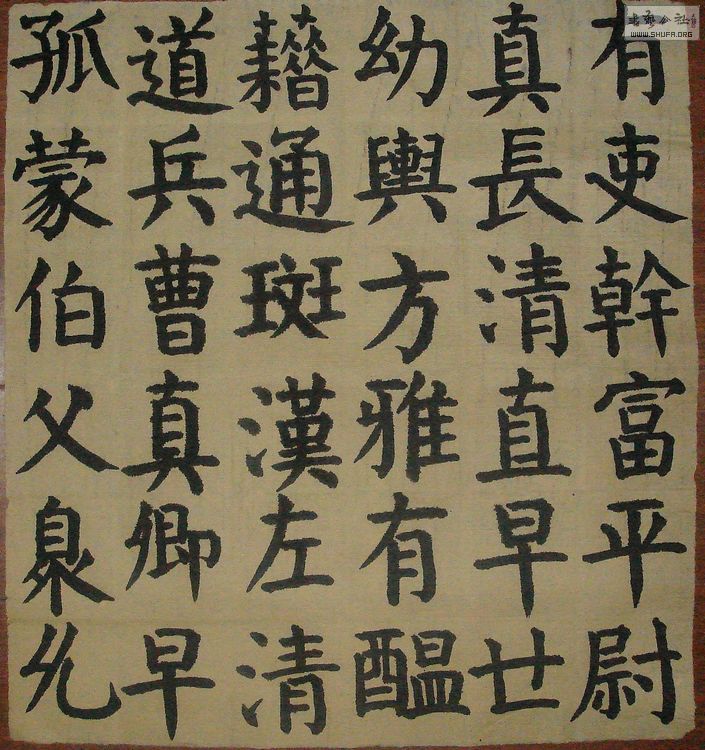 有吏幹富平尉
真長清直早世
幼輿方雅有醞
藉通斑漢左清
道兵曹真卿早
孤蒙伯父臮允
WWW.SHUFA.ORG